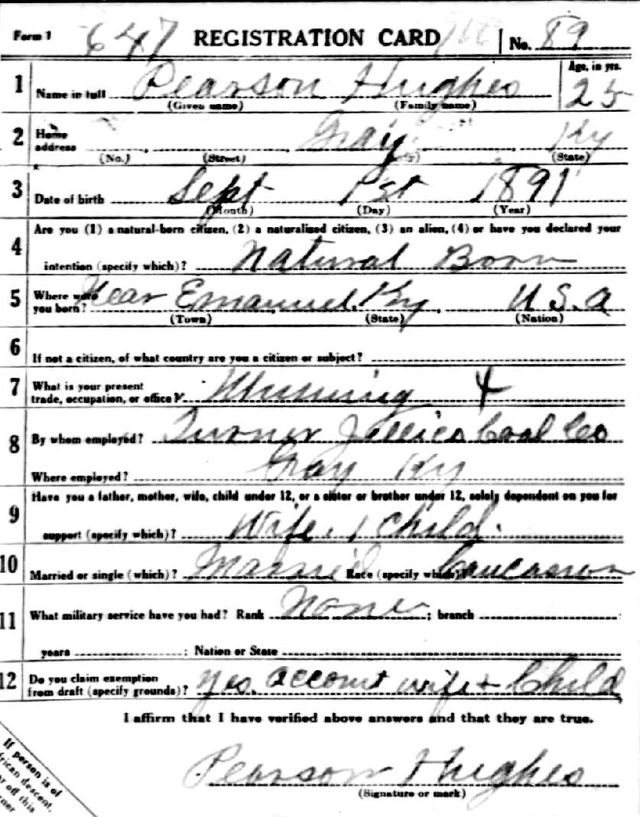 Form 1 647 REGISTRATION CARD No. 89
1 Name in full Pearson Hughes Age, in yrs. 25
(Given name) (Family name)
2 Home address Gray Ky
(No.) (Street) (State)
3 Date of birth Sept 1st 1891
(Month) (Day) (Year)
Are you (1) a natural-born citizen, (2) a naturalized citizen, (3) an alien, (4) or have you declared your
4 intention (specify which)? Natural Born
5 Where were you born? Near Emanuel, Ky U.S.a
(Town) (State) (Nation)
6 If not a citizen, of what country are you a citizen or subject?
7 What is your present trade, occupation, or office? 4
8 By whom employed? Turner Jellico Coal Co
Where employed? Gray Ky
Have you a father, mother, wife, child under 12, or a sister or brother under 12, solely dependent on you for
9 support (specify which)? Wife, 1 Child.
10 Married or single (which)? Married Race (specify which)? Caucasian
11 What military service have you had? Rank None ; branch
years ; Nation or State
12 Do you claim exemption from draft (specify grounds)? Yes. account wife + Child
I affirm that I have verified above answers and that they are true.
Pearson Hughes
(Signature or mark)
If person is of
rican descent,
r off this
rner